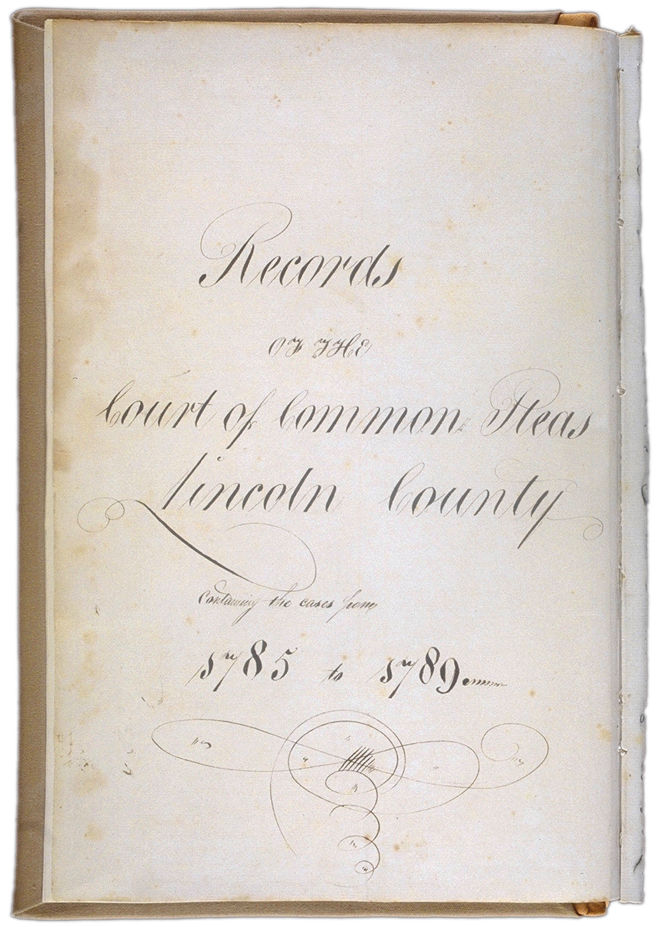 Records
OF THE
Court of Common Pleas
Lincoln County
Containing the cases from
1785 to 1789